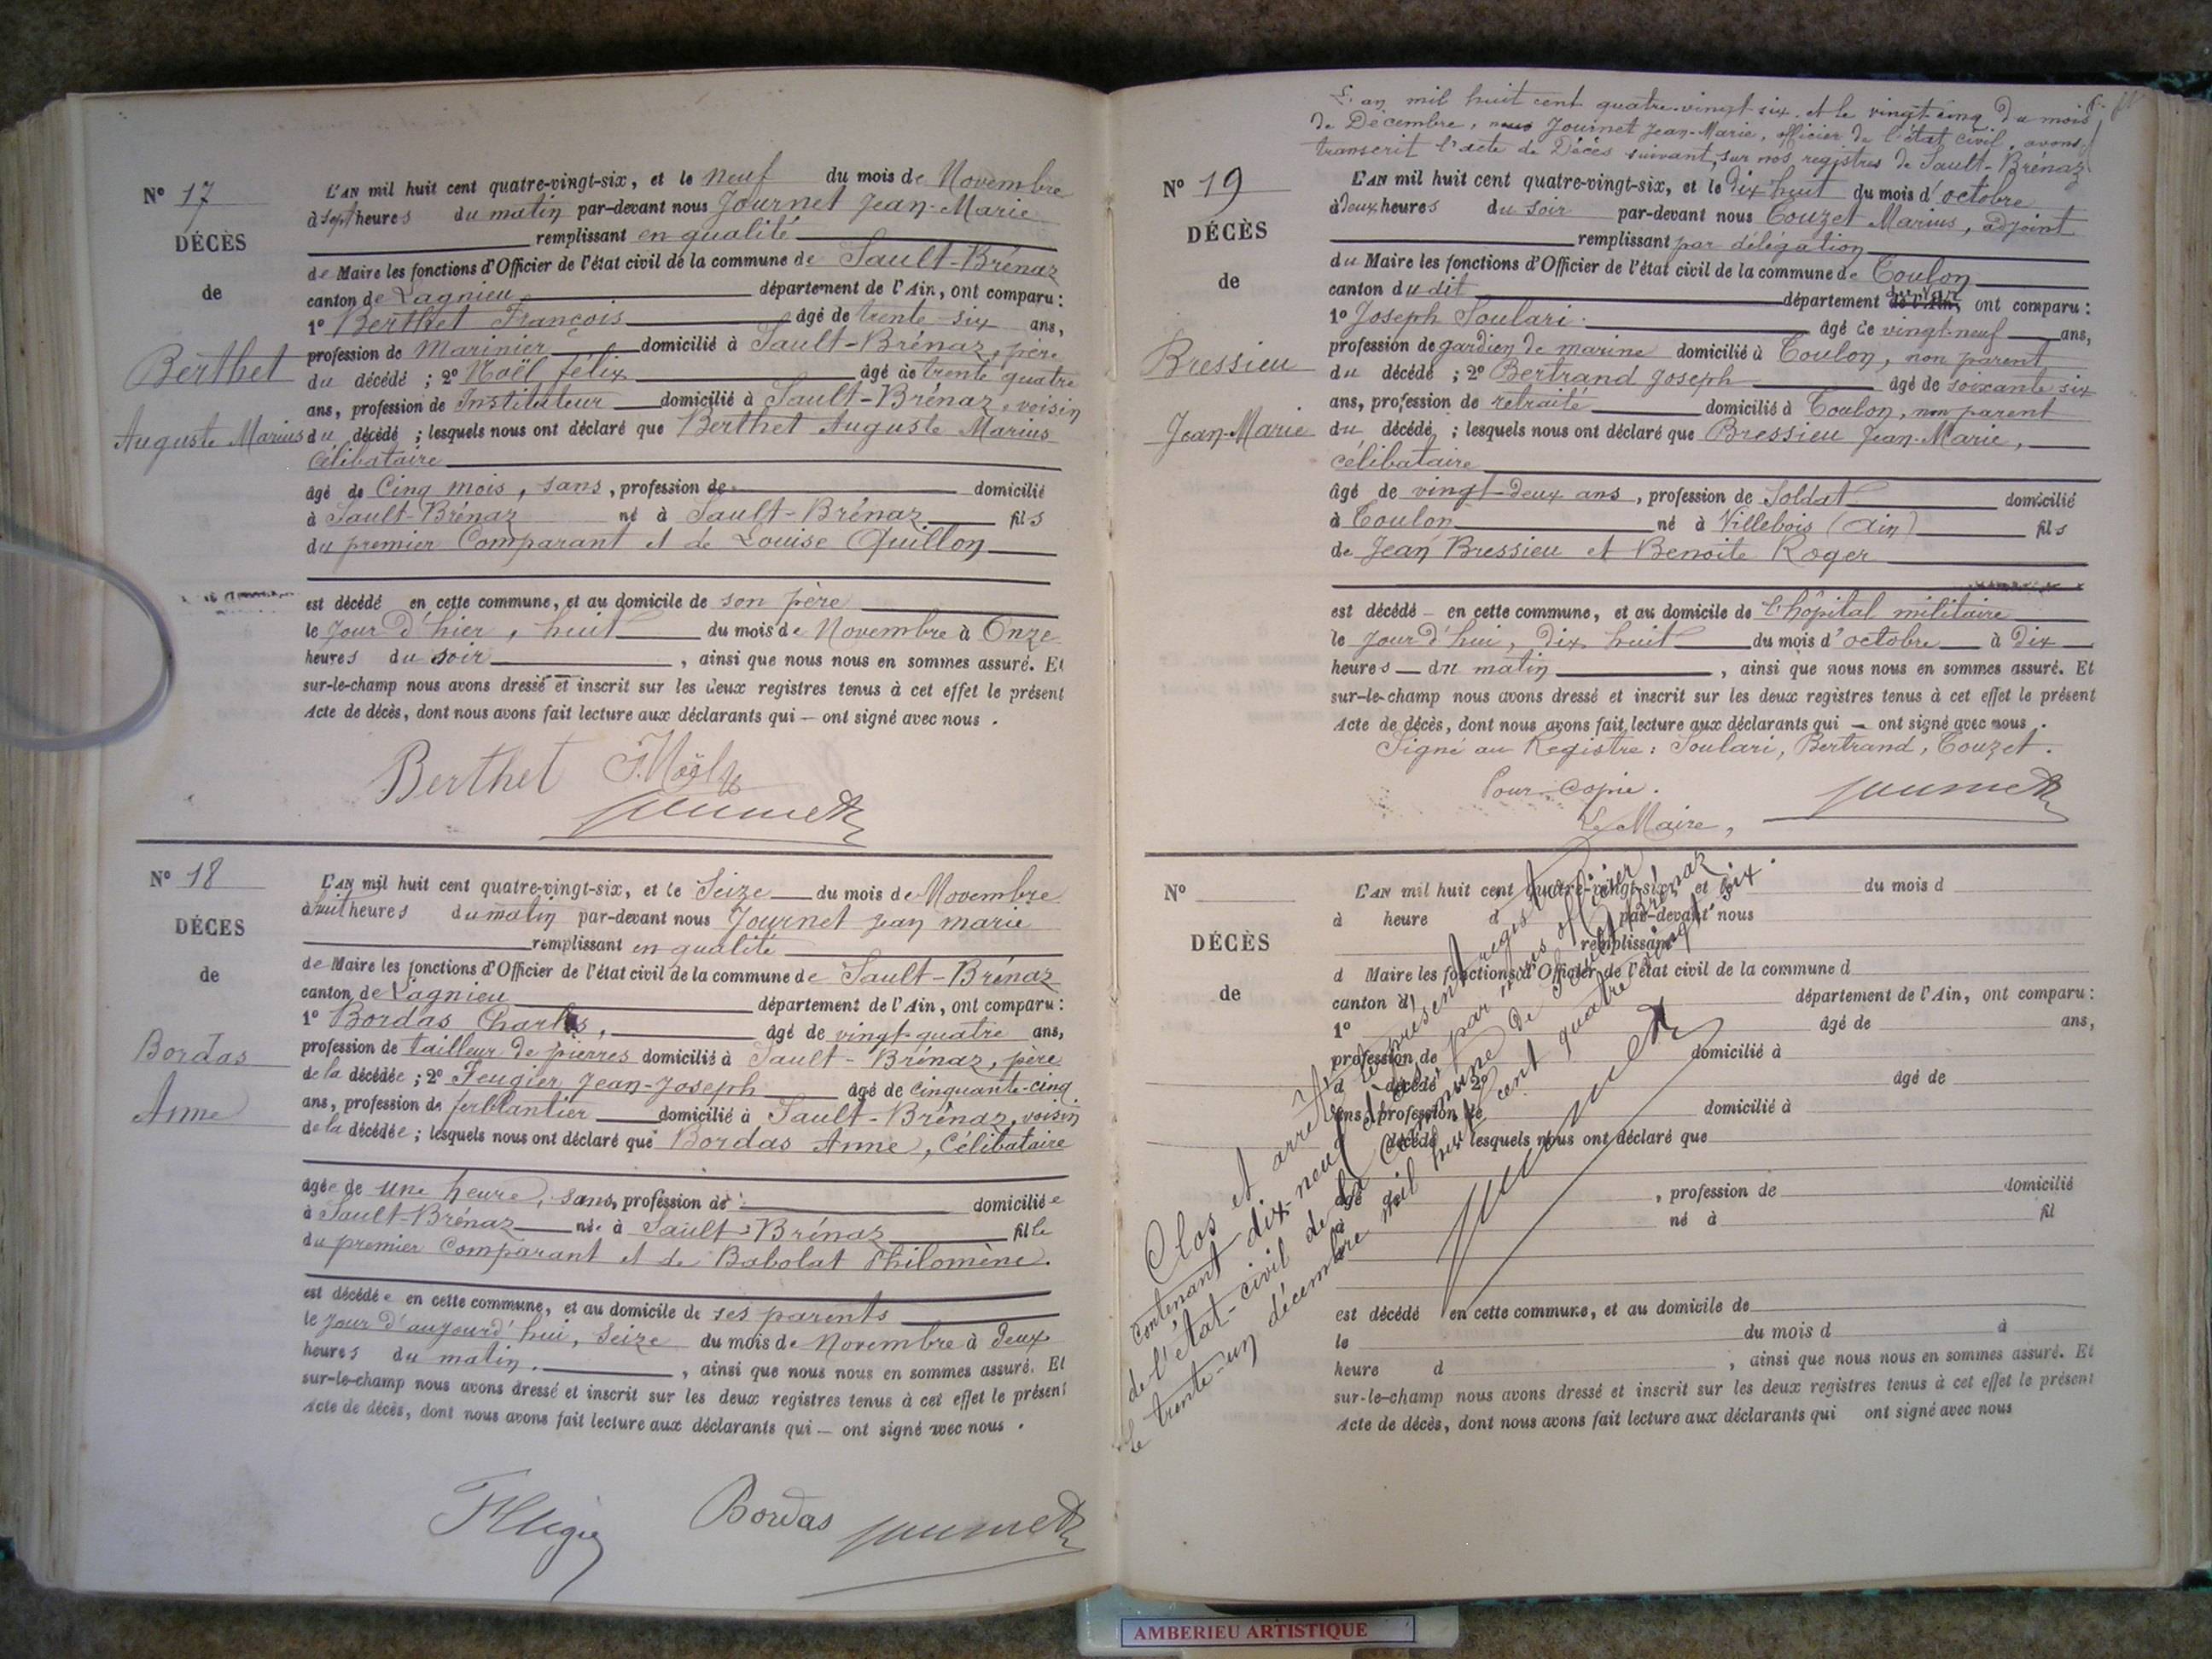 N° 17
DÉCÈS
de
Berthet
Auguste Marius
L'AN mil huit cent quatre-vingt-six, et le neuf du mois de Novembre
à sept heures du matin par-devant nous Journet Jean-Marie
remplissant en qualité
de Maire les fonctions d'Officier de l'état civil de la commune de Sault-Brénaz
canton de Lagnieu département de l'Ain, ont comparu :
1° Berthet François âgé de trente-six ans,
profession de Marinier domicilié à Sault-Brénaz, père
du décédé ; 2° Noël félix âgé de trente quatre
ans, profession de Instituteur domicilié à Sault-Brénaz, voisin
du décédé ; lesquels nous ont déclaré que Berthet Auguste Marius
Célibataire
âgé de Cinq mois, sans, profession de domicilié
à Sault-Brénaz né à Sault-Brénaz fils
du premier Comparant et de Louise Quillon
est décédé en cette commune, et au domicile de son père
le Jour d'hier, huit du mois de Novembre à Onze
heures du soir, ainsi que nous nous en sommes assuré. Et
sur-le-champ nous avons dressé et inscrit sur les deux registres tenus à cet effet le présent
Acte de décès, dont nous avons fait lecture aux déclarants qui — ont signé avec nous .
Berthet F. Noël
Journet
N° 18
DÉCÈS
de
Bordas
Anne
L'AN mil huit cent quatre-vingt-six, et le Seize du mois de Novembre
à huit heures du matin par-devant nous Journet Jean marie
remplissant en qualité
de Maire les fonctions d'Officier de l'état civil de la commune de Sault-Brénaz
canton de Lagnieu département de l'Ain, ont comparu :
1° Bordas Charles, âgé de vingt-quatre ans,
profession de tailleur de pierres domicilié à Sault-Brénaz, père
de la décédée ; 2° Feugier Jean-Joseph âgé de cinquante-cinq
ans, profession de ferblantier domicilié à Sault-Brénaz, voisin
de la décédée ; lesquels nous ont déclaré que Bordas Anne, Célibataire
âgée de une heure, sans, profession de domiciliée
à Sault-Brénaz née à Sault-Brénaz fille
du premier Comparant et de Babolat Philomène.
est décédée en cette commune, et au domicile de ses parents
le Jour d'aujourd'hui, Seize du mois de Novembre à deux
heures du matin. , ainsi que nous nous en sommes assuré. Et
sur-le-champ nous avons dressé et inscrit sur les deux registres tenus à cet effet le présent
Acte de décès, dont nous avons fait lecture aux déclarants qui — ont signé avec nous .
Feugier Bordas Journet
L'an mil huit cent quatre-vingt-six et le vingt cinq du mois
de Décembre, nous Journet Jean-Marie, officier de l'état civil, avons
transcrit l'acte de Décès suivant, sur nos registres de Sault-Brénaz
N° 19
DÉCÈS
de
Bressieu
Jean-Marie
L'AN mil huit cent quatre-vingt-six, et le dix huit du mois d'octobre
à deux heures du soir par-devant nous Couzet Marius, adjoint
remplissant par délégation
du Maire les fonctions d'Officier de l'état civil de la commune de Toulon
canton dudit département du Var ont comparu :
1° Joseph Soulari âgé de vingt-neuf ans,
profession de gardien de marine domicilié à Toulon, non parent
du décédé ; 2° Bertrand Joseph âgé de soixante six
ans, profession de retraité domicilié à Toulon, non parent
du décédé ; lesquels nous ont déclaré que Bressieu Jean-Marie,
célibataire
âgé de vingt-deux ans, profession de Soldat domicilié
à Toulon né à Villebois (Ain) fils
de Jean Bressieu et Benoite Roger
est décédé — en cette commune, et au domicile de l'hôpital militaire
le jour d'hui, dix huit du mois d'octobre à dix
heures — du matin, ainsi que nous nous en sommes assuré. Et
sur-le-champ nous avons dressé et inscrit sur les deux registres tenus à cet effet le présent
Acte de décès, dont nous avons fait lecture aux déclarants qui — ont signé avec nous .
Signé au Registre : Soulari, Bertrand, Couzet.
Pour copie.
Le Maire,
Journet
N°
DÉCÈS
de
L'AN mil huit cent quatre-vingt-six, et le du mois d
à heure d par-devant nous
remplissant
d Maire les fonctions d'Officier de l'état civil de la commune d
canton d département de l'Ain, ont comparu :
1° âgé de ans,
profession de domicilié à
d décédé 2° âgé de
ans, profession de domicilié à
décédé lesquels nous ont déclaré que
âgé de , profession de domicilié
à né à fil
est décédé en cette commune, et au domicile de
le du mois d à
heure d , ainsi que nous nous en sommes assuré. Et
sur-le-champ nous avons dressé et inscrit sur les deux registres tenus à cet effet le présent
Acte de décès, dont nous avons fait lecture aux déclarants qui ont signé avec nous
Clos et arrêté le présent registre
contenant dix-neuf actes, par nous officier
de l'état-civil de la Commune de Sault-Brénaz
le trente-un décembre mil huit cent quatre vingt six.
Journet
AMBERIEU ARTISTIQUE